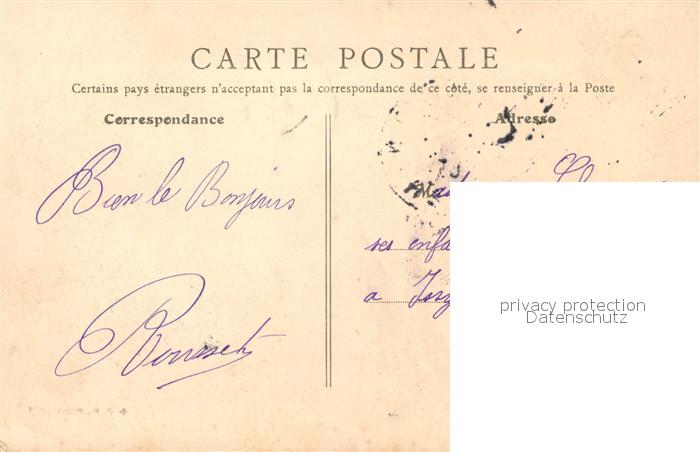 CARTE POSTALE
Certains pays étrangers n'acceptant pas la correspondance de ce côté, se renseigner à la Poste
Correspondance
Adresse
Bien le Bonjours
ses
a
privacy protection
Datenschutz